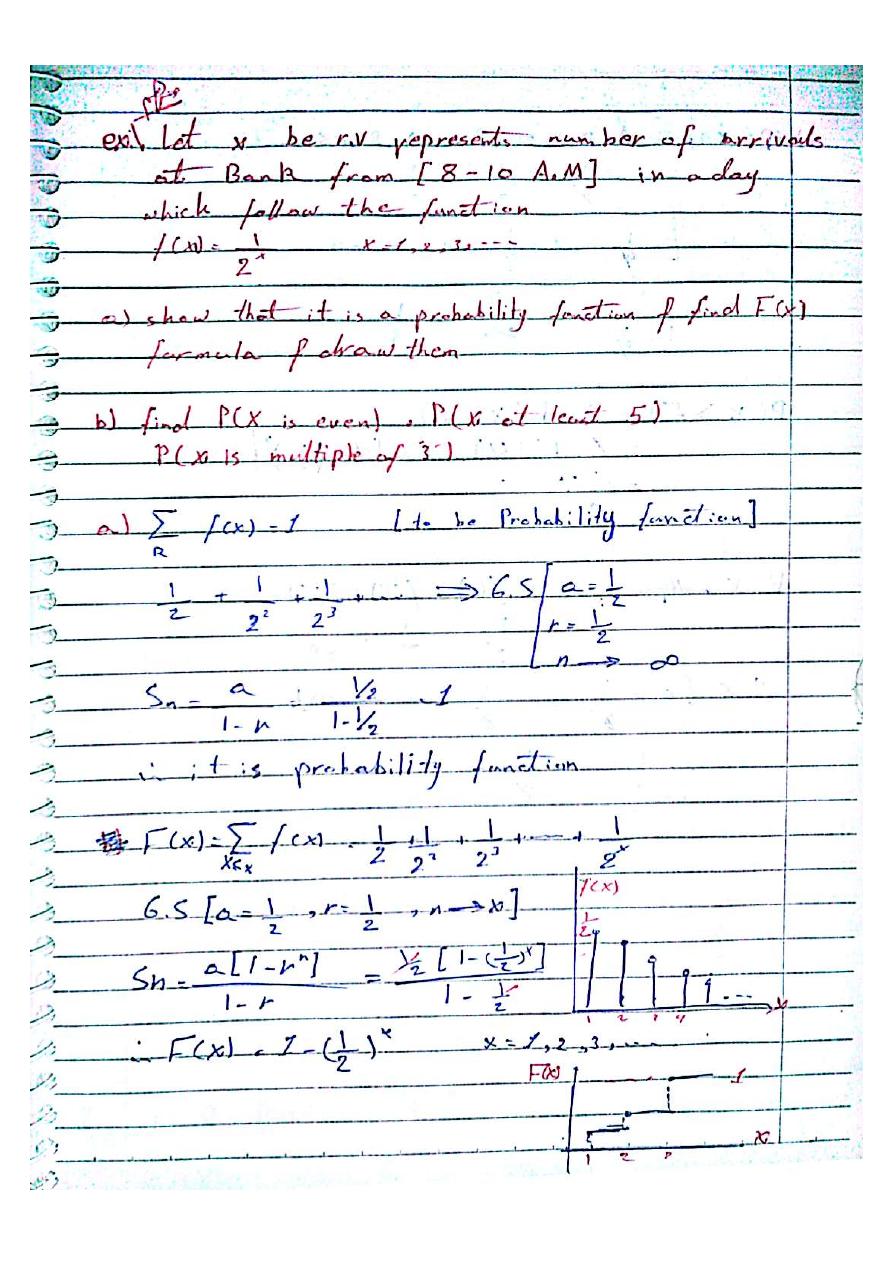 ex:\ Let x be r.v represents number of arrivals
at Bank from [8-10 A.M] in a day
which follow the function
f(x) = 1/2^x x = 1, 2, 3, ....
a) show that it is a probability function & find F(x)
formula & draw them
b) find P(X is even), P(X at least 5)
P(x is multiple of 3)
a) Σ_R f(x) = 1 [to be Probability function]
1/2 + 1/2² + 1/2³ + .... ⟹ G.S [a = 1/2
r = 1/2
n → ∞
Sn = a/(1-r) = (1/2)/(1-1/2) = 1
∴ it is probability function
F(x) = Σ_{X≤x} f(x) = 1/2 + 1/2² + 1/2³ + .... + 1/2^x
G.S [a = 1/2, r = 1/2, n → x]
Sn = a[1-r^n]/(1-r) = 1/2 [1-(1/2)^x]/(1 - 1/2)
∴ F(x) = 1-(1/2)^x x = 1, 2, 3, ....
f(x)
1/2
1 2 3 4 ... x
F(x) 1
1 2 3 x